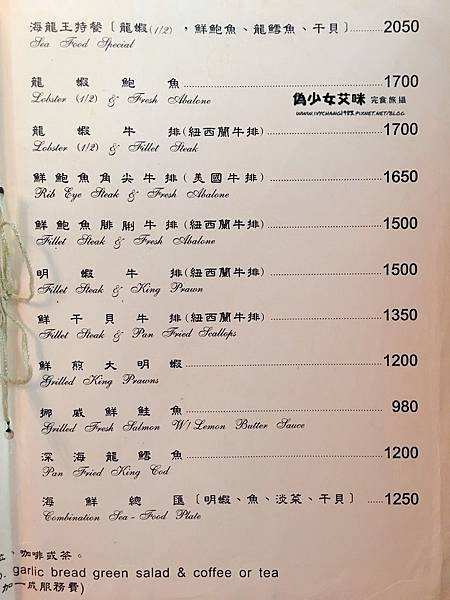 海龍王特餐〔龍蝦(1/2)，鮮鮑魚、龍鱈魚、干貝〕........2050
Sea Food Special
龍蝦鮑魚................1700
Lobster (1/2) & Fresh Abalone
偽少女艾咪 完食旅攝
WWW.IVYCHANG1983.PIXNET.NET/BLOG
龍蝦牛排(紐西蘭牛排)................1700
Lobster (1/2) & Fillet Steak
鮮鮑魚角尖牛排(美國牛排)................1650
Rib Eye Steak & Fresh Abalone
鮮鮑魚腓脷牛排(紐西蘭牛排)................1500
Fillet Steak & Fresh Abalone
明蝦牛排(紐西蘭牛排)................1500
Fillet Steak & King Prawn
鮮干貝牛排(紐西蘭牛排)................1350
Fillet Steak & Pan Fried Scallops
鮮煎大明蝦................1200
Grilled King Prawns
挪威鮮鮭魚................980
Grilled Fresh Salmon W/Lemon Butter Sauce
深海龍鱈魚................1200
Pan Fried King Cod
海鮮總匯〔明蝦、魚、淡菜、干貝〕......1250
Combination Sea-Food Plate
、咖啡或茶。
garlic bread green salad & coffee or tea
加一成服務費)